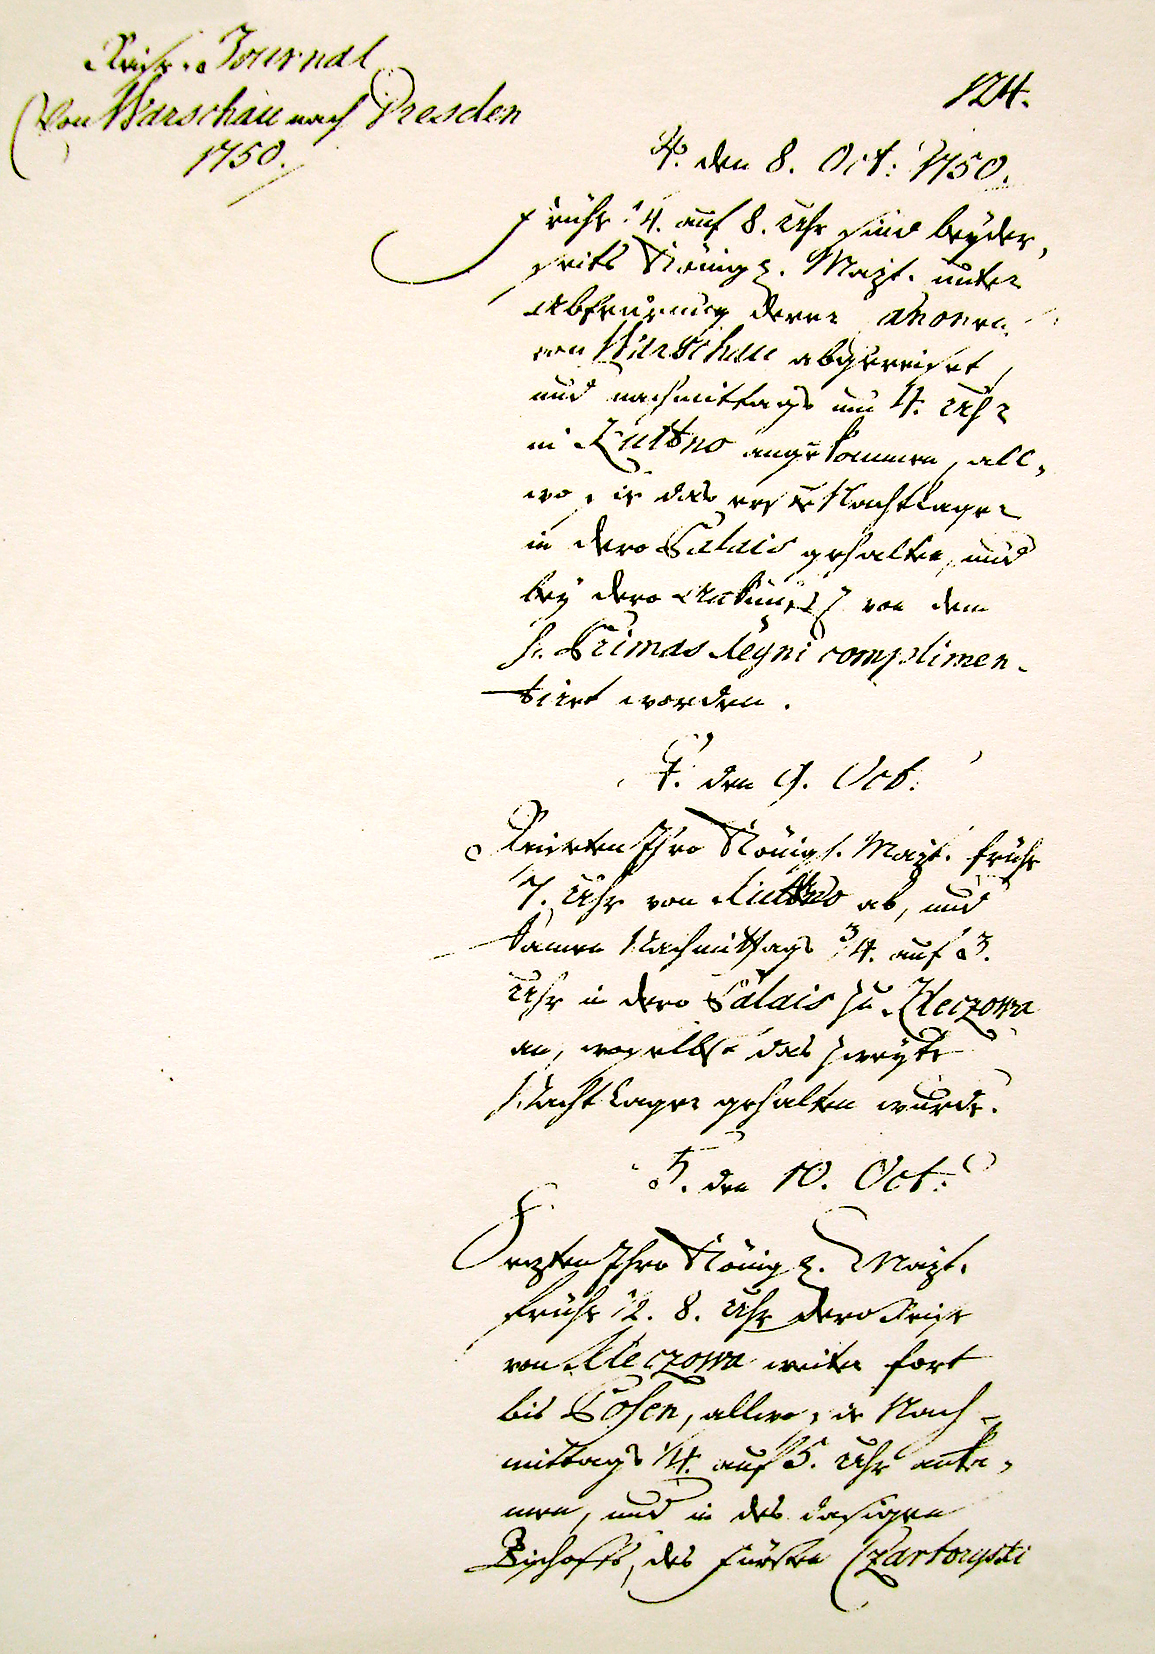 Reise-Journal
von Warschau nach Dresden
1750.
124.
♃. den 8. Oct: 1750.
Frühe 1/4. auf 8. Uhr sind beyder,
seits Königl. Mayt. unter
Abfeurung derer Canonen
von Warschau abgereiset,
und nachmittags um 4. Uhr
in Kuttno angekommen, all,
wo sie das erste Nachtlager
in dero Palais gehalten, und
bey dero Ankunfft von dem
H. Primas Regni complimen-
tiret worden.
♀. den 9. Oct.
Reiseten Ihro Königl. Mayt. frühe
7. Uhr von Kuttno ab, und
kamen Nachmittags 3/4. auf 3.
Uhr in dero Palais zu Kleczowa
an, woselbst das zweyte
Nachtlager gehalten wurde.
♄. den 10. Oct:
Sezten Ihro Königl. Mayt.
frühe 1/2. 8. Uhr dero Reise
von Kleczowa weiter fort
bis Posen, allwo sie Nach-
mittags 1/4. auf 5. Uhr anka,
men, und in des dasigen
Bischoffs, des Fürsten Czartoryski